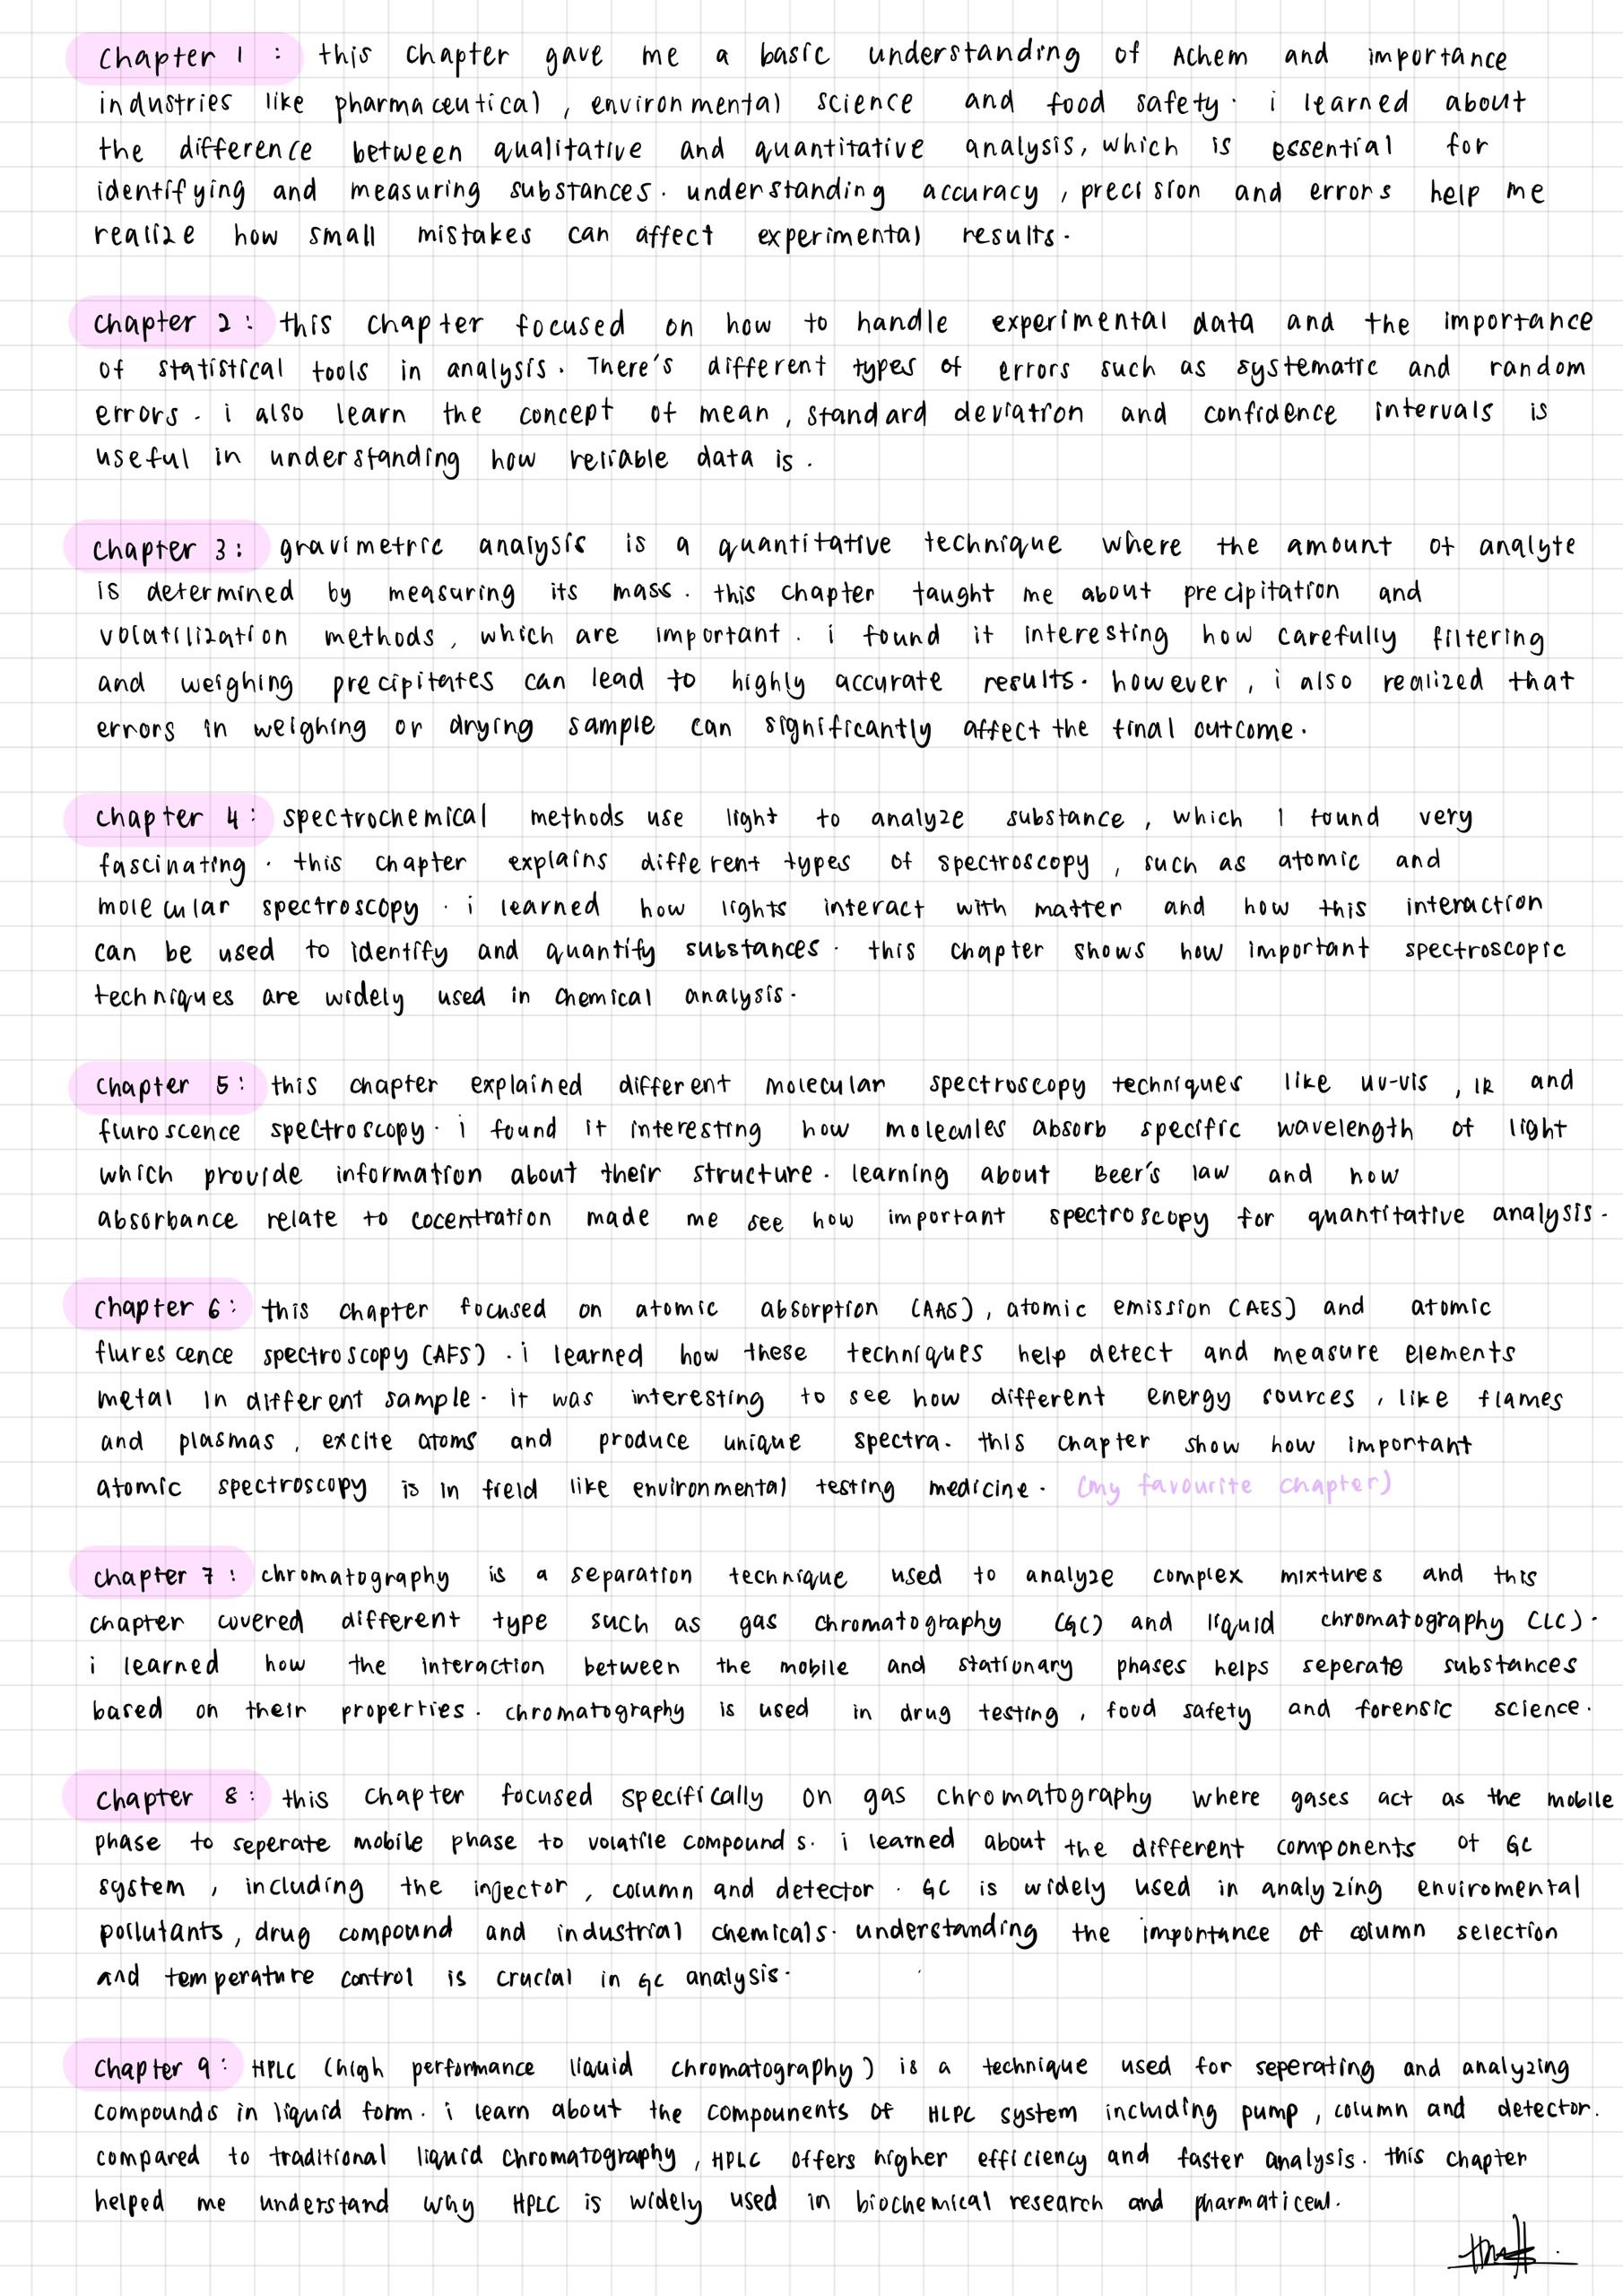 Chapter 1 : this chapter gave me a basic understanding of Achem and importance
industries like pharmaceutical, environmental science and food safety. i learned about
the difference between qualitative and quantitative analysis, which is essential for
identifying and measuring substances. understanding accuracy, precision and errors help me
realize how small mistakes can affect experimental results.
Chapter 2 : this chapter focused on how to handle experimental data and the importance
of statistical tools in analysis. There's different types of errors such as systematic and random
errors. i also learn the concept of mean, standard deviation and confidence intervals is
useful in understanding how reliable data is.
Chapter 3 : gravimetric analysis is a quantitative technique where the amount of analyte
is determined by measuring its mass. this chapter taught me about precipitation and
volatilization methods, which are important. i found it interesting how carefully filtering
and weighing precipitates can lead to highly accurate results. however, i also realized that
errors in weighing or drying sample can significantly affect the final outcome.
Chapter 4 : spectrochemical methods use light to analyze substance, which I found very
fascinating. this chapter explains different types of spectroscopy, such as atomic and
molecular spectroscopy. i learned how lights interact with matter and how this interaction
can be used to identify and quantify substances. this chapter shows how important spectroscopic
techniques are widely used in chemical analysis.
Chapter 5 : this chapter explained different molecular spectroscopy techniques like uv-vis, IR and
fluroscence spectroscopy. i found it interesting how molecules absorb specific wavelength of light
which provide information about their structure. learning about Beer's law and how
absorbance relate to cocentration made me see how important spectroscopy for quantitative analysis.
Chapter 6 : this chapter focused on atomic absorption (AAS), atomic emission (AES) and atomic
flurescence spectroscopy (AFS). i learned how these techniques help detect and measure elements
metal in different sample. it was interesting to see how different energy sources, like flames
and plasmas, excite atoms and produce unique spectra. this chapter show how important
atomic spectroscopy is in field like environmental testing medicine. (my favourite chapter)
Chapter 7 : chromatography is a separation technique used to analyze complex mixtures and this
chapter covered different type such as gas chromatography (GC) and liquid chromatography (LC).
i learned how the interaction between the mobile and stationary phases helps seperate substances
based on their properties. chromatography is used in drug testing, food safety and forensic science.
Chapter 8 : this chapter focused specifically on gas chromatography where gases act as the mobile
phase to seperate mobile phase to volatile compounds. i learned about the different components of GC
system, including the injector, column and detector. GC is widely used in analyzing enviromental
pollutants, drug compound and industrial chemicals. understanding the importance of column selection
and temperature control is crucial in GC analysis.
Chapter 9 : HPLC (high performance liquid chromatography) is a technique used for seperating and analyzing
compounds in liquid form. i learn about the compounents of HLPC system including pump, column and detector.
compared to traditional liquid chromatography, HPLC offers higher efficiency and faster analysis. this chapter
helped me understand why HPLC is widely used in biochemical research and pharmaticeul.